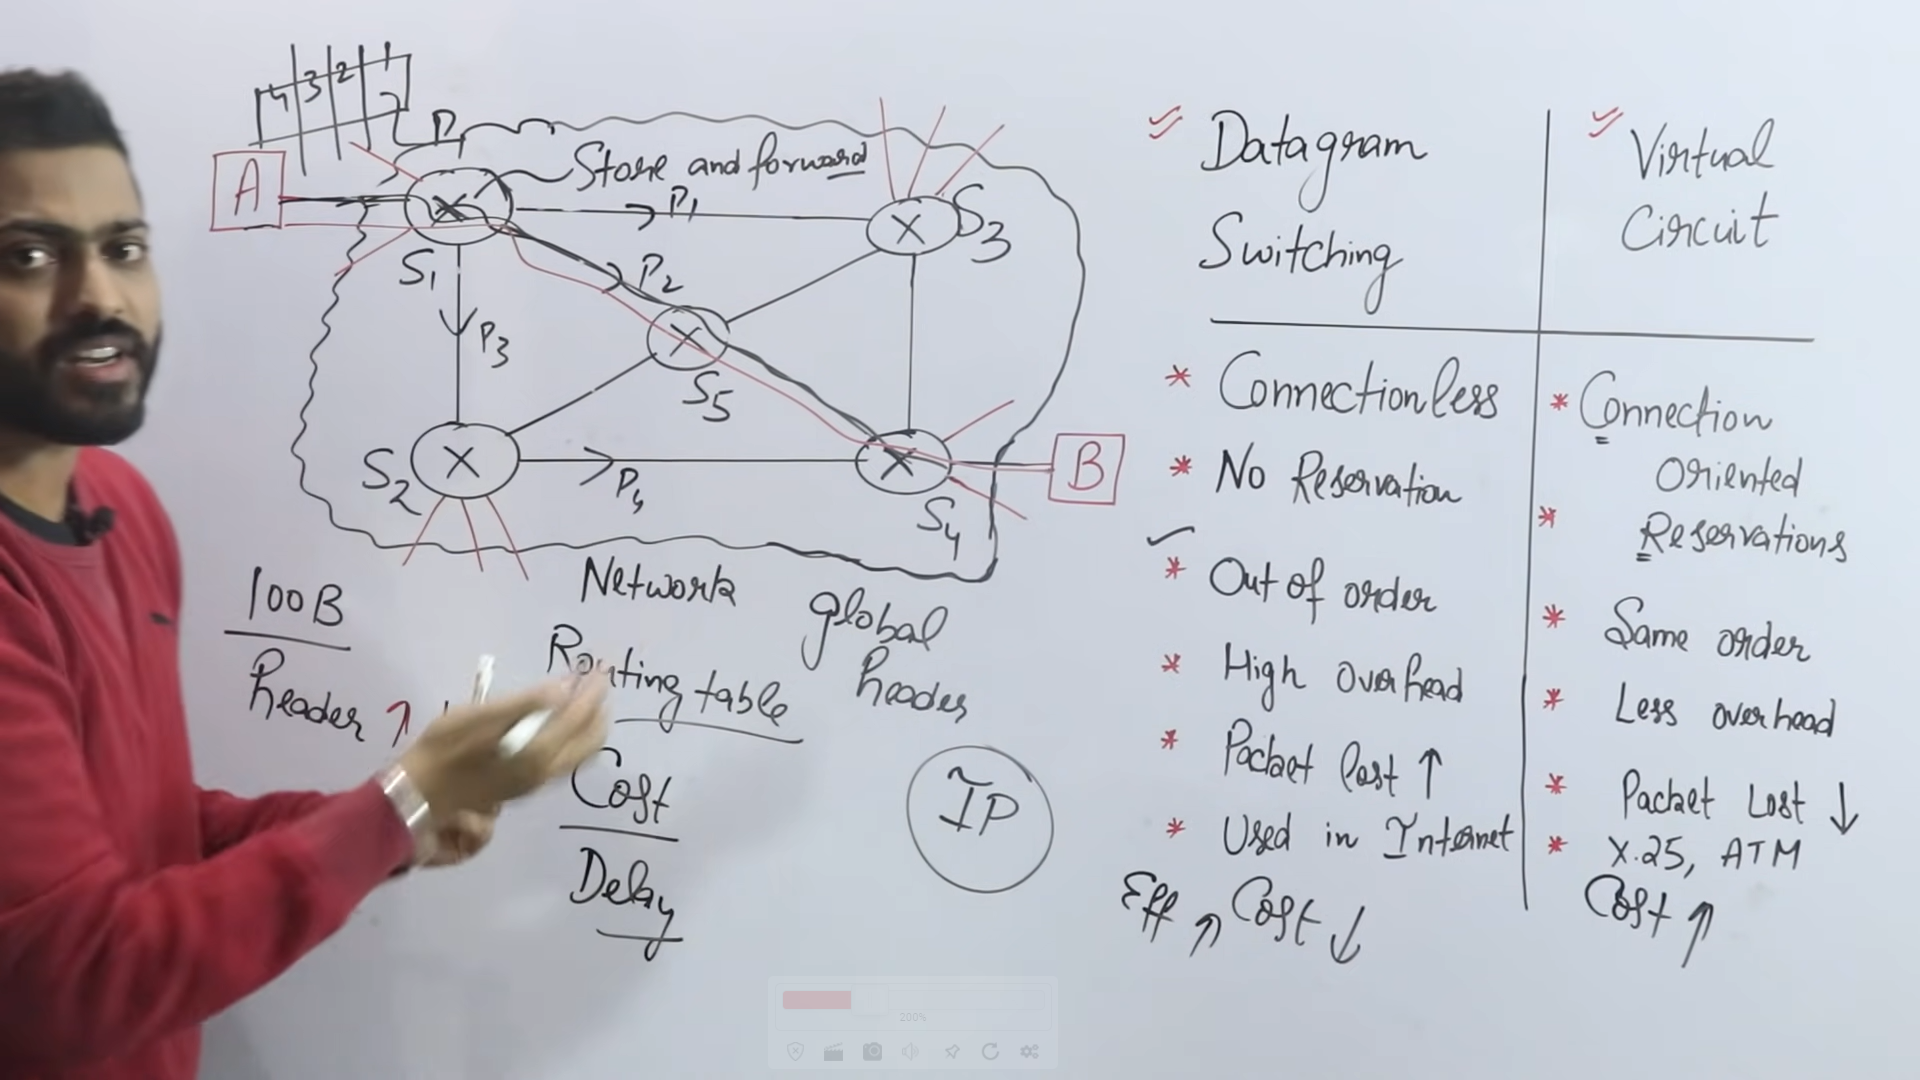 4 3 2 1
P1
A
Store and forward
P1
S3
S1
P2
P3
S5
S2
P4
S4
B
100B
header ↑
Network
global
header
Routing table
Cost
Delay
IP
Datagram
Switching
* Connectionless
* No Reservation
* Out of order
* High Overhead
* Packet lost ↑
* Used in Internet
Eff ↑ Cost ↓
Virtual
Circuit
* Connection
Oriented
* Reservations
* Same order
* Less overhead
* Packet Lost ↓
* X.25, ATM
Cost ↑
200%